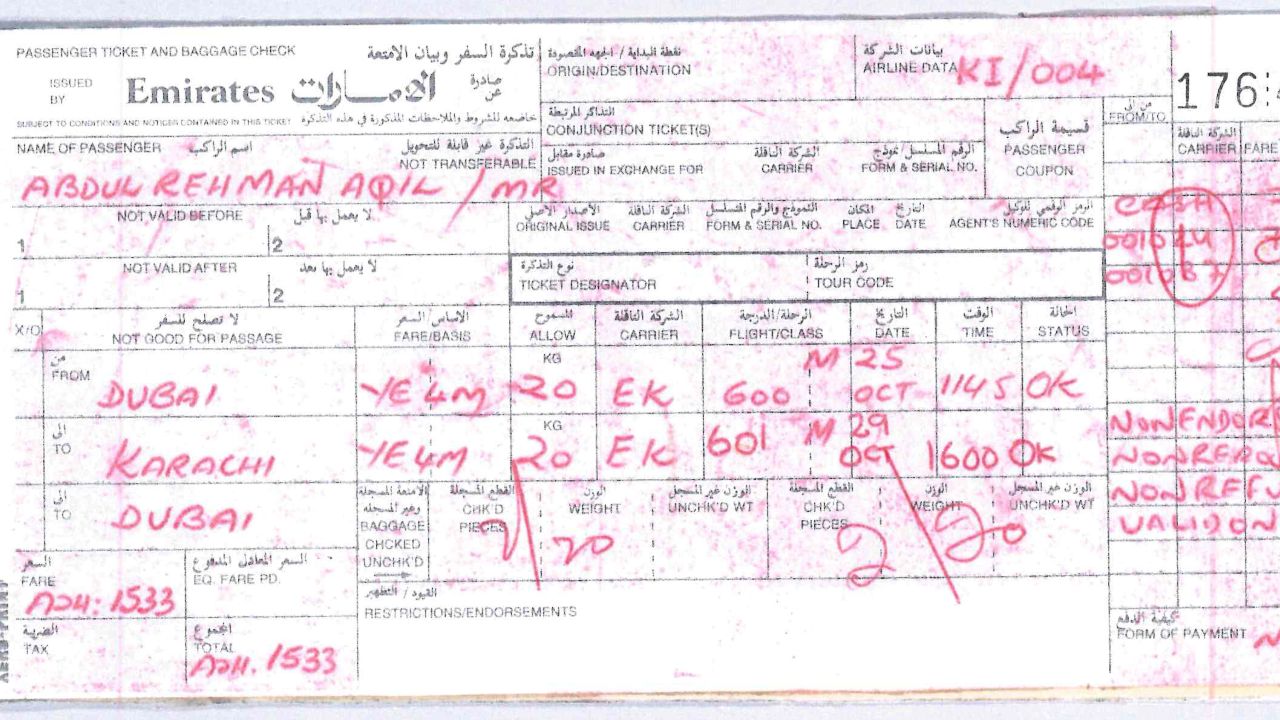 PASSENGER TICKET AND BAGGAGE CHECK تذكرة السفر وبيان الامتعة
ISSUED BY Emirates الامارات صادرة عن
SUBJECT TO CONDITIONS AND NOTICES CONTAINED IN THIS TICKET خاضعه للشروط والملاحظات المذكورة في هذه التذكرة
نقطة البداية / الجهه المقصودة
ORIGIN/DESTINATION
بيانات الشركة
AIRLINE DATA KI/004
176:
NAME OF PASSENGER اسم الراكب التذكرة غير قابلة للتحويل
NOT TRANSFERABLE
ABDUL REHMAN AQIL / MR
التذاكر المرتبطة
CONJUNCTION TICKET(S)
صادرة مقابل الشركة الناقلة الرقم المسلسل / نموذج
ISSUED IN EXCHANGE FOR CARRIER FORM & SERIAL NO.
قسيمة الراكب
PASSENGER COUPON
من/الى
FROM/TO
الشركة الناقلة
CARRIER FARE
NOT VALID BEFORE لا يعمل بها قبل
1 2
الأصدار الأصلي الشركة الناقلة النموذج والرقم المسلسل المكان التاريخ
ORIGINAL ISSUE CARRIER FORM & SERIAL NO. PLACE DATE AGENT'S NUMERIC CODE
NOT VALID AFTER لا يعمل بها بعد
1 2
نوع التذكرة رمز الرحلة
TICKET DESIGNATOR TOUR CODE
X/O لا تصلح للسفر الاساس/السعر المسموح الشركة الناقلة الرحلة/الدرجة التاريخ الوقت الحالة
NOT GOOD FOR PASSAGE FARE/BASIS ALLOW CARRIER FLIGHT/CLASS DATE TIME STATUS
من
FROM DUBAI YE4M KG 20 EK 600 M 25 OCT 1145 OK
الى
TO KARACHI YE4M KG 20 EK 601 M 29 OCT 1600 OK
NONENDOR
الى
TO DUBAI
الامتعة المسجلة وغير المسجله القطع المسجلة الوزن الوزن غير المسجل القطع المسجلة الوزن الوزن غير المسجل
BAGGAGE CHCKED UNCHK'D CHK'D PIECES WEIGHT UNCHK'D WT CHK'D PIECES WEIGHT UNCHK'D WT
20 2 20
NONREF
VALID ON
السعر السعر المعادل المدفوع
FARE EQ. FARE PD.
1533
القيود / التظهير
RESTRICTIONS/ENDORSEMENTS
الضريبة المجموع
TAX TOTAL
1533
كيفية الدفع
FORM OF PAYMENT